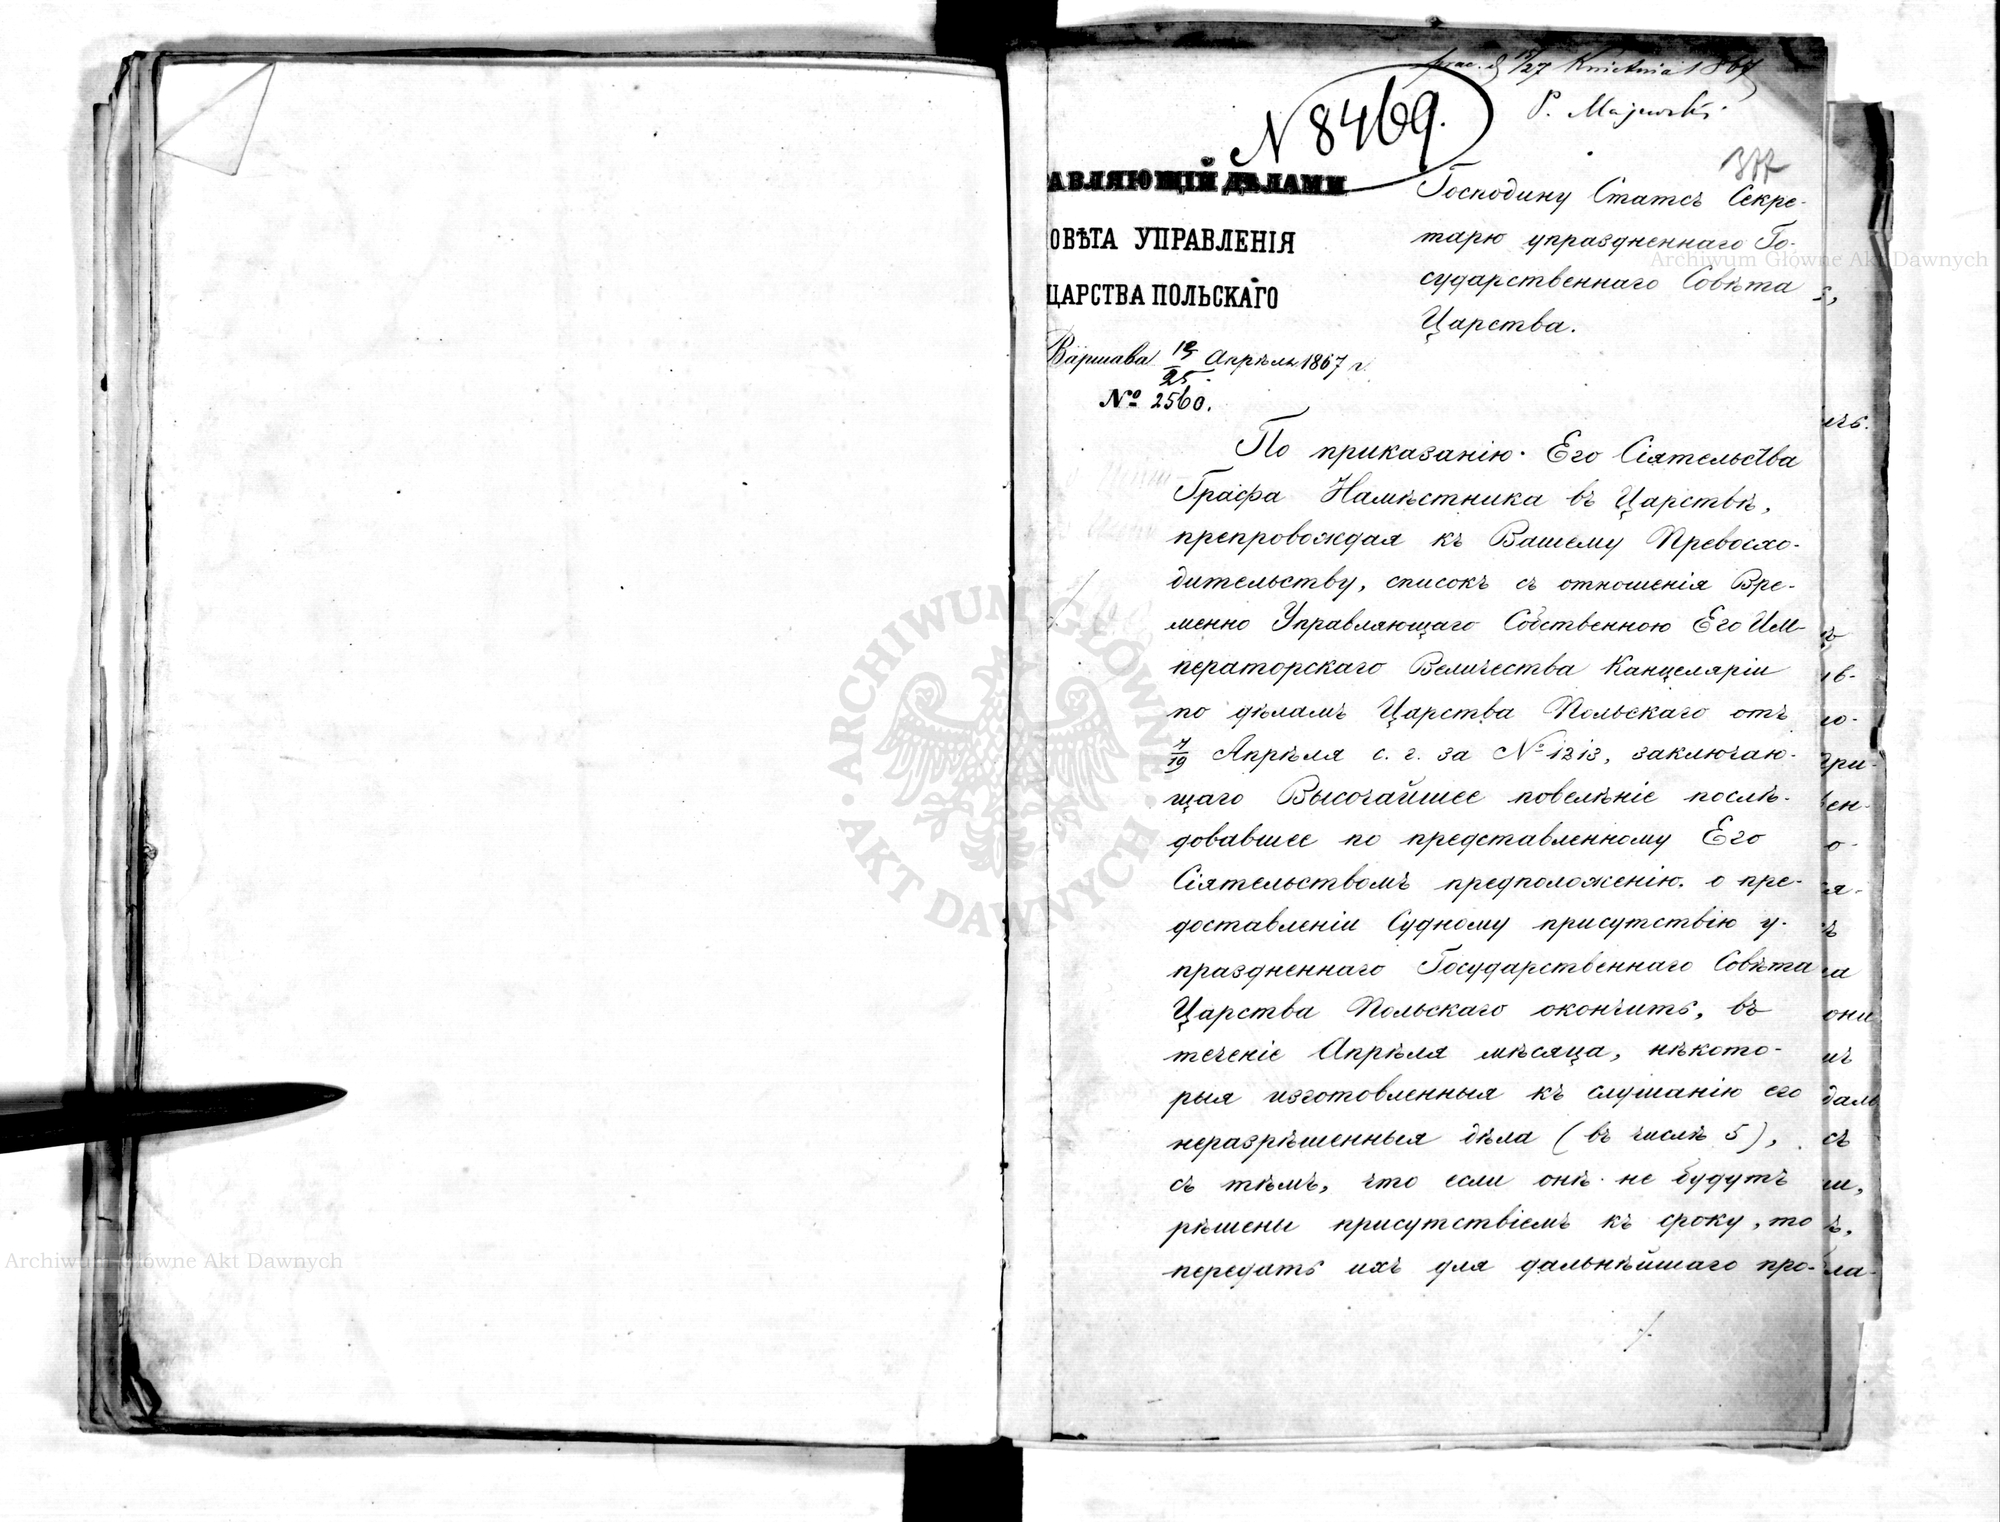 15/27 Kwietnia 1867
P. Majewski.
N 8469.
377
АВЛЯЮЩІЙ ДѢЛАМИ
ОВѢТА УПРАВЛЕНІЯ
ЦАРСТВА ПОЛЬСКАГО
Варшава 13/25 Апрѣля 1867 г.
№ 2560.
Господину Статсъ Секре-
тарю упраздненнаго Го-
сударственнаго Совѣта
Царства.
По приказанію Его Сіятельства
Графа Намѣстника въ Царствѣ,
препровождая къ Вашему Превосхо-
дительству, списокъ съ отношенія Вре-
менно Управляющаго Собственною Его Им-
ператорскаго Величества Канцеляріи
по дѣламъ Царства Польскаго отъ
7/19 Апрѣля с. г. за № 1213, заключаю-
щаго Высочайшее повелѣніе послѣ-
довавшее по представленному Его
Сіятельствомъ предположенію о пре-
доставленіи Судному присутствію у-
праздненнаго Государственнаго Совѣта
Царства Польскаго окончить, въ
теченіе Апрѣля мѣсяца, нѣкото-
рыя изготовленныя къ слушанію его
неразрѣшенныя дѣла (въ числѣ 5),
съ тѣмъ, что если онѣ не будутъ
рѣшены присутствіемъ къ сроку, то
передать ихъ для дальнѣйшаго про-
Archiwum Główne Akt Dawnych
ARCHIWUM GŁÓWNE AKT DAWNYCH
Archiwum Główne Akt Dawnych